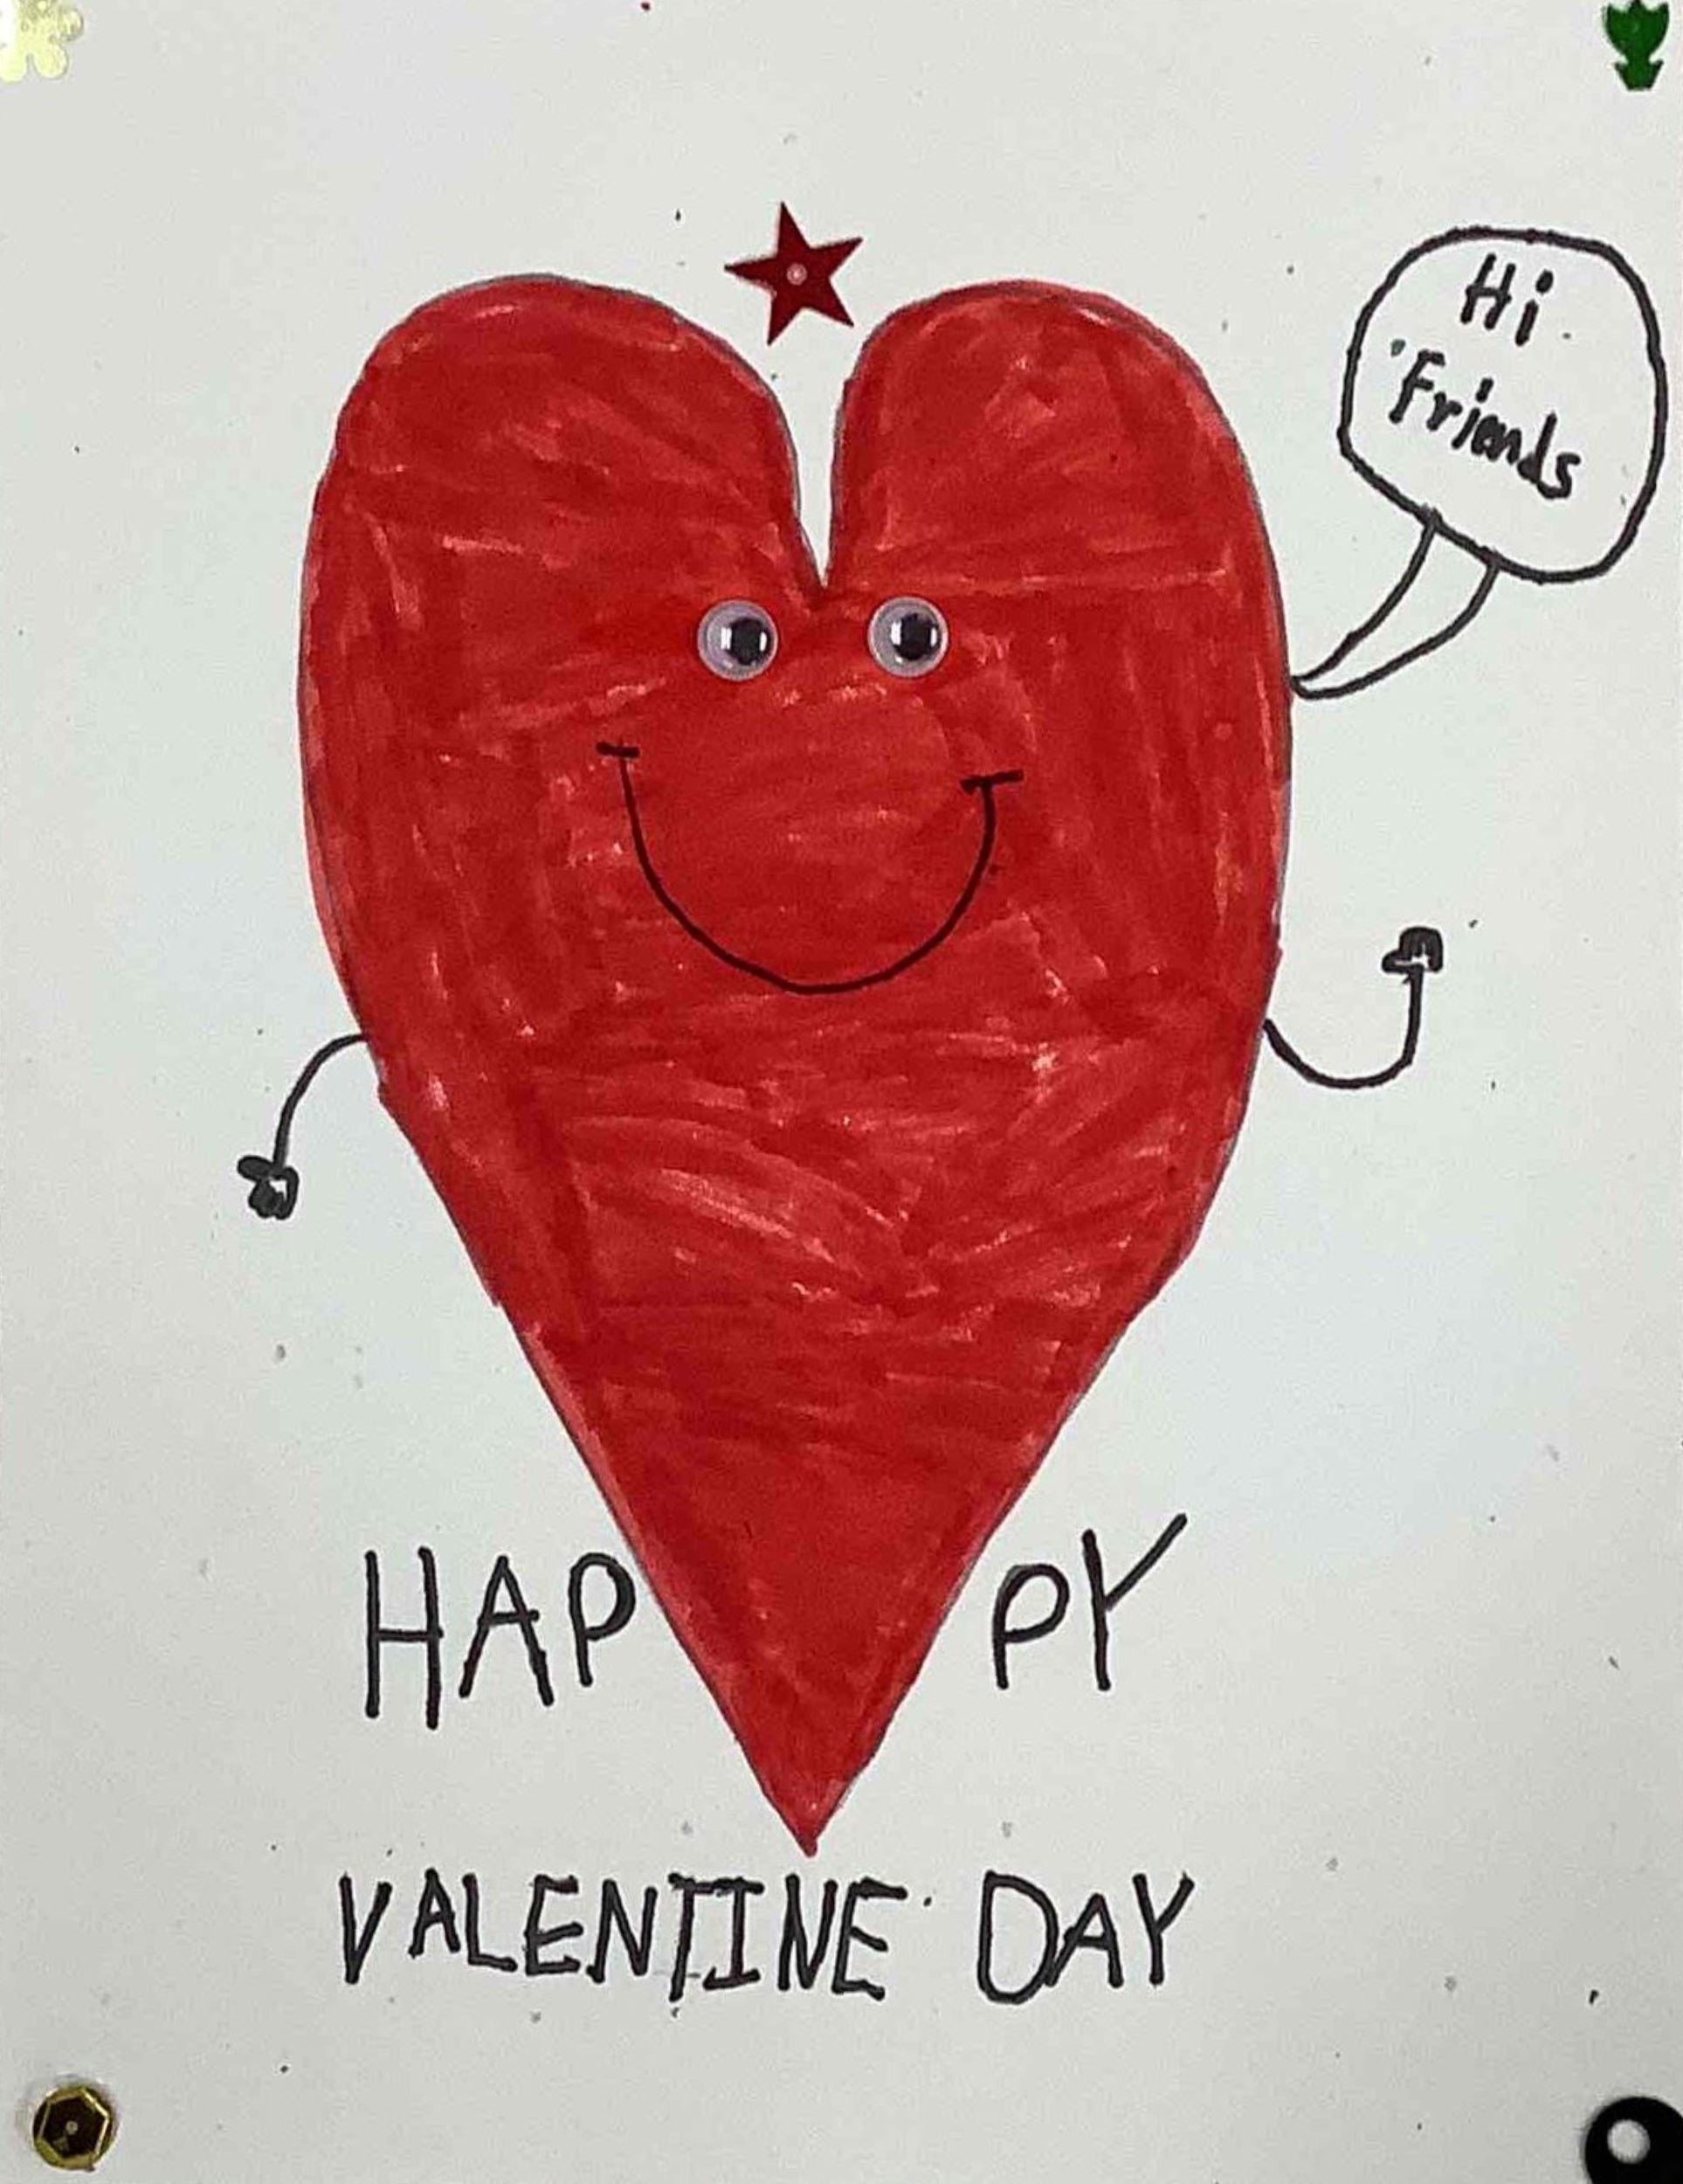 Hi
Friends
HAP PY
VALENTINE DAY